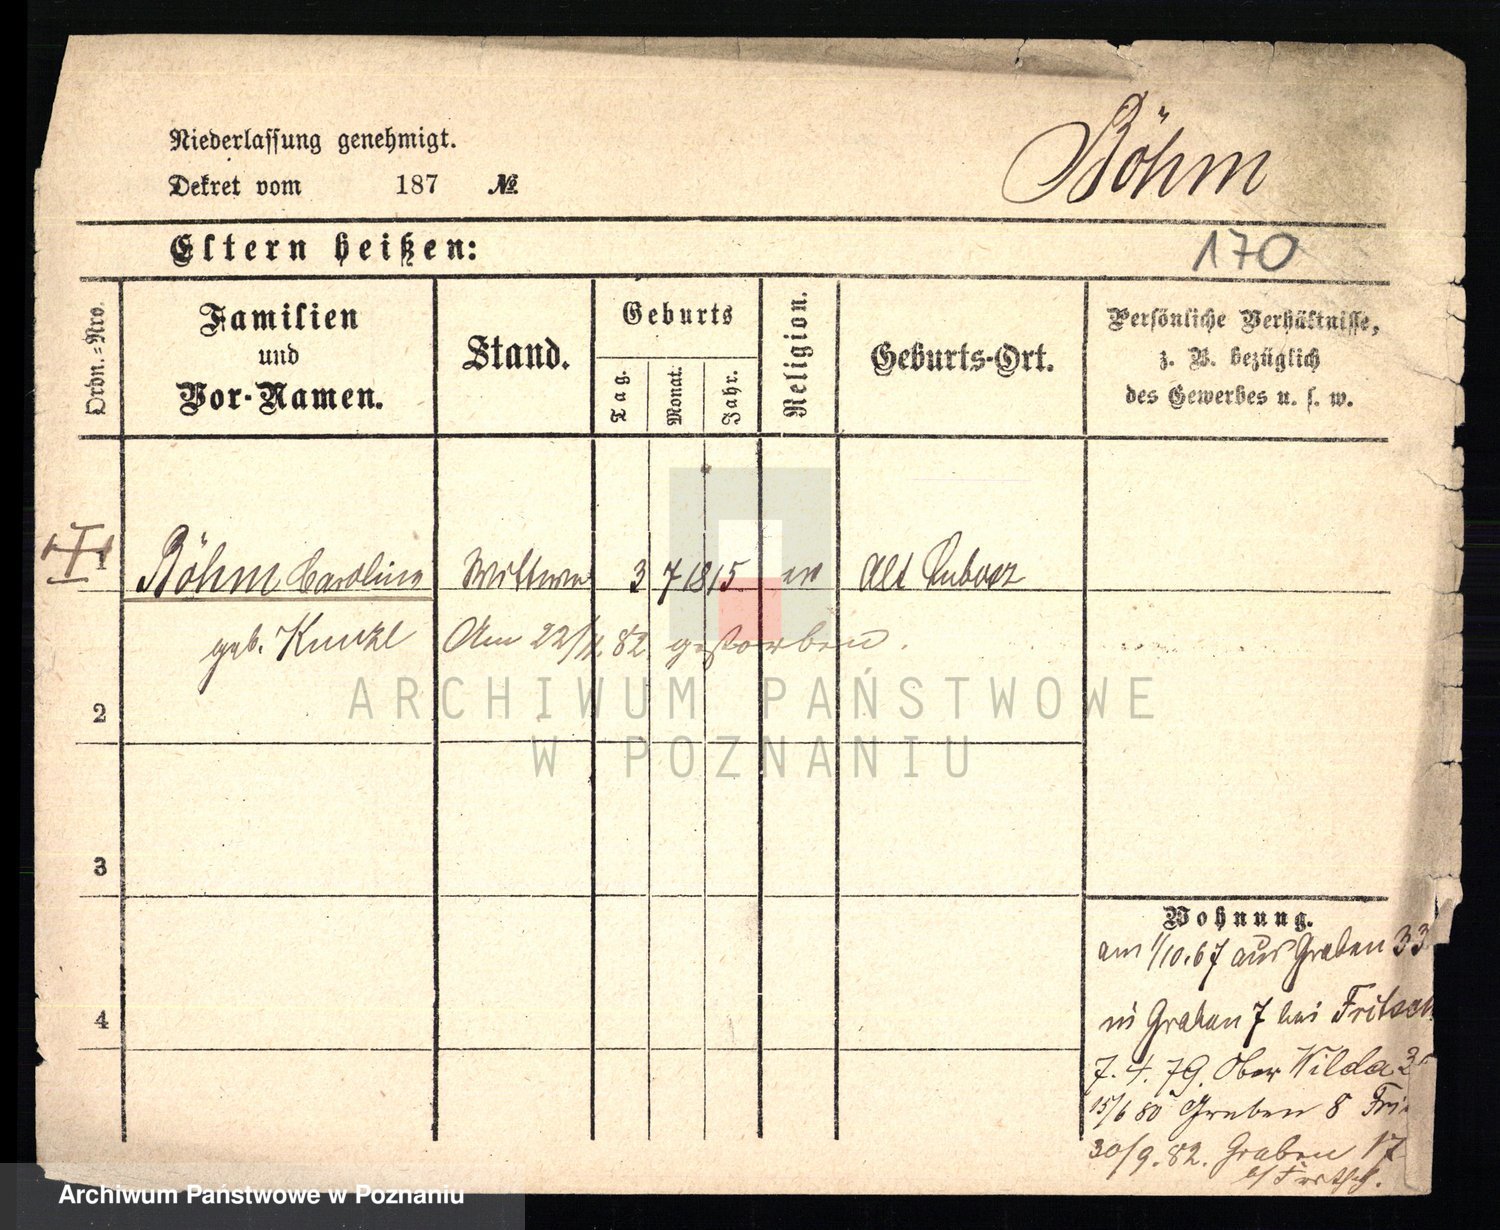 Böhm
Niederlassung genehmigt.
Dekret vom 187 №
170
Eltern heißen:
Ordn.=Nro.
Familien
und
Vor-Namen.
Stand.
Geburts
Tag.
Monat.
Jahr.
Religion.
Geburts-Ort.
Persönliche Verhältnisse,
z. B. bezüglich
des Gewerbes u. s. w.
1 Böhm Caroline Wittwe 3 7 1815 ev Alt
geb. Am 22/11.82. gestorben.
2
3
4
Wohnung.
am 1/10.67 aus Graben 33
in Graben 7 bei Fritsch
7. 4. 79. Ober Wilda
15/6 80 Graben 8
30/9.82. Graben 17
b/ Fritsch.
ARCHIWUM PAŃSTWOWE
W POZNANIU
Archiwum Państwowe w Poznaniu